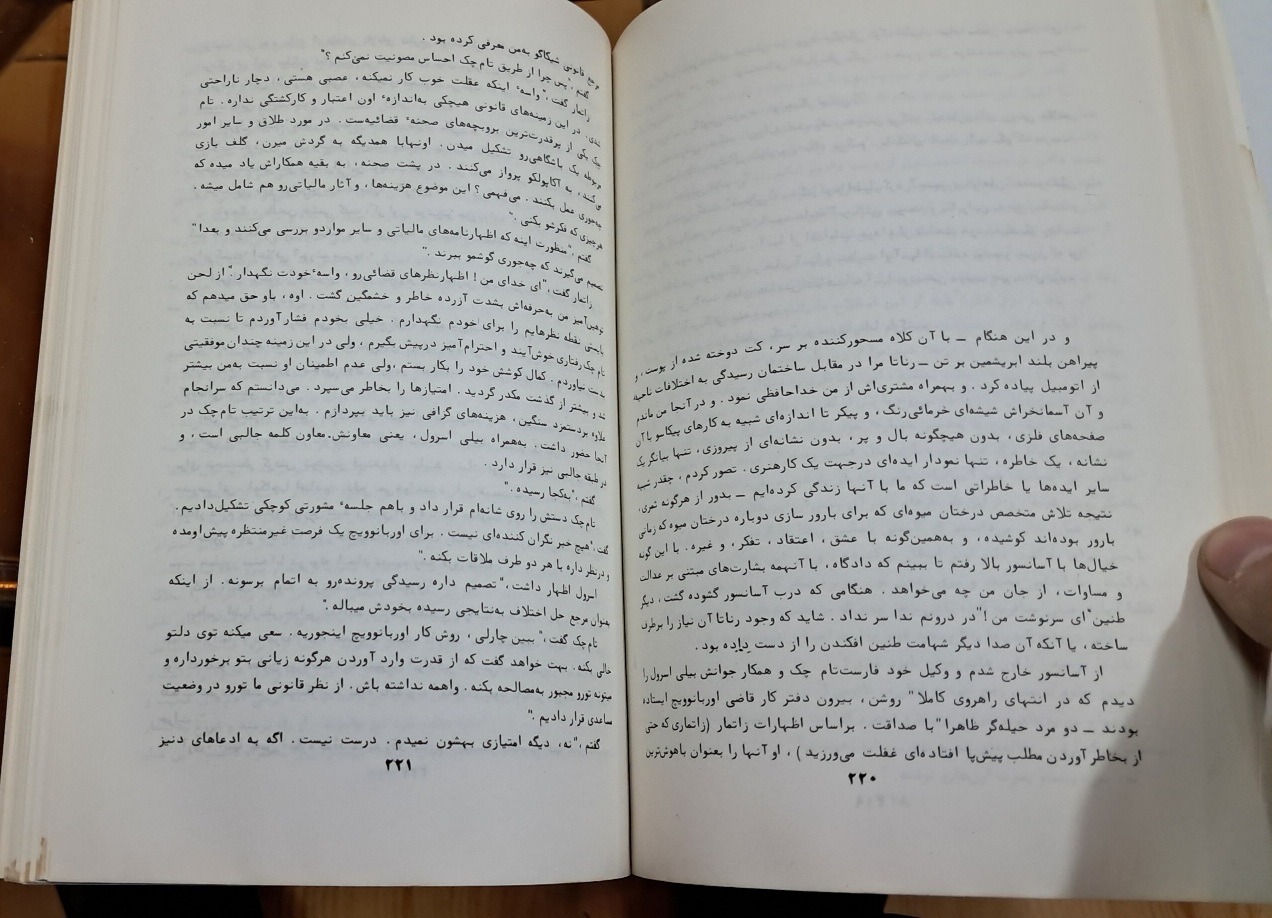 و در این هنگام ــ با آن کلاه مسحورکننده بر سر، کت دوخته شده از پوست، و
پیراهن بلند ابریشمین بر تن ــ رناتا مرا در مقابل ساختمان رسیدگی به اختلافات ناحیه
از اتومبیل پیاده کرد. و بهمراه مشتری‌اش از من خداحافظی نمود. و در آنجا من ماندم
و آن آسمانخراش شیشه‌ای خرمائی‌رنگ، و پیکر تا اندازه‌ای شبیه به کارهای پیکاسو با آن
صفحه‌های فلزی، بدون هیچگونه بال و پر، بدون نشانه‌ای از پیروزی، تنها بیانگر یک
نشانه، یک خاطره، تنها نمودار ایده‌ای درجهت یک کارهنری. تصور کردم، چقدر شبیه
سایر ایده‌ها یا خاطراتی است که ما با آنها زندگی کرده‌ایم ــ بدور از هرگونه ثمری،
نتیجه تلاش متخصص درختان میوه‌ای که برای بارور سازی دوباره درختان میوه که زمانی
بارور بوده‌اند کوشیده، و به‌همین‌گونه با عشق، اعتقاد، تفکر، و غیره. با این گونه
خیال‌ها با آسانسور بالا رفتم تا ببینم که دادگاه، با آنهمه بشارت‌های مبتنی بر عدالت
و مساوات، از جان من چه می‌خواهد. هنگامی که درب آسانسور گشوده گشت، دیگر
طنین "ای سرنوشت من!" در درونم ندا سر نداد. شاید که وجود رناتا آن نیاز را برطرف
ساخته، یا آنکه آن صدا دیگر شهامت طنین افکندن را از دست داده بود.
از آسانسور خارج شدم و وکیل خود فارست‌تام چک و همکار جوانش بیلی اسرول را
دیدم که در انتهای راهروی کاملا" روشن، بیرون دفتر کار قاضی اوربانوویچ ایستاده
بودند ــ دو مرد حیله‌گر ظاهرا" با صداقت. براساس اظهارات زاتمار (زاتماری که حتی
از بخاطر آوردن مطلب پیش‌پا افتاده‌ای غفلت می‌ورزید)، او آنها را بعنوان باهوش‌ترین
۲۲۰
مرجع قانونی شیکاگو به‌من معرفی کرده بود.
گفتم، "پس چرا از طریق تام‌چک احساس مصونیت نمی‌کنم؟"
زاتمار گفت، "واسهٔ اینکه عقلت خوب کار نمیکنه، عصبی هستی، دچار ناراحتی
شدی. در این زمینه‌های قانونی هیچکی به‌اندازهٔ اون اعتبار و کارکشتگی نداره. تام
چک یکی از پرقدرت‌ترین بروبچه‌های صحنهٔ قضائیه‌ست. در مورد طلاق و سایر امور
مربوطه یک باشگاهی‌رو تشکیل میدن. اونهابا همدیگه به گردش میرن، گلف بازی
می‌کنند، به آکاپولکو پرواز می‌کنند. در پشت صحنه، به بقیه همکاراش یاد میده که
چه‌جوری عمل بکنند. می‌فهمی؟ این موضوع هزینه‌ها، و آثار مالیاتی‌رو هم شامل میشه.
هرچیزی که فکرشو بکنی."
گفتم، "منظورت اینه که اظهارنامه‌های مالیاتی و سایر مواردو بررسی می‌کنند و بعدا"
تصمیم می‌گیرند که چه‌جوری گوشمو ببرند."
زاتمار گفت، "ای خدای من! اظهارنظرهای قضائی‌رو، واسهٔ خودت نگهدار." از لحن
توهین‌آمیز من به‌حرفه‌اش بشدت آزرده خاطر و خشمگین گشت. اوه، باو حق میدهم که
بایستی نقطه نظرهایم را برای خودم نگهدارم. خیلی بخودم فشار‌آوردم تا نسبت به
تام‌چک رفتاری خوش‌آیند و احترام‌آمیز درپیش بگیرم، ولی در این زمینه چندان موفقیتی
به‌دست نیاوردم. کمال کوشش خود را بکار بستم، ولی عدم اطمینان او نسبت به‌من بیشتر
شد و بیشتر از گذشت مکدر گردید. امتیازها را بخاطر می‌سپرد. می‌دانستم که سرانجام
علاوه بردستمزد سنگین، هزینه‌های گزافی نیز باید بپردازم. به‌این ترتیب تام‌چک در
آنجا حضور داشت. به‌همراه بیلی اسرول، یعنی معاونش. معاون کلمه جالبی است، و
در طبقه جالبی نیز قرار دارد.
گفتم، "به‌کجا رسیده."
تام‌چک دستش را روی شانه‌ام قرار داد و باهم جلسهٔ مشورتی کوچکی تشکیل‌دادیم.
گفت، "هیچ خبر نگران کننده‌ای نیست. برای اوربانوویچ یک فرصت غیرمنتظره پیش‌اومده
و درنظر داره با هر دو طرف ملاقات بکنه."
اسرول اظهار داشت، "تصمیم داره رسیدگی پرونده‌رو به اتمام برسونه. از اینکه
بعنوان مرجع حل اختلاف به‌نتایجی رسیده بخودش میباله."
تام‌چک گفت، "ببین چارلی، روش کار اوربانوویچ اینجوریه. سعی میکنه توی دلتو
خالی بکنه. بهت خواهد گفت که از قدرت وارد آوردن هرگونه زیانی بتو برخورداره و
میتونه تورو مجبور به‌مصالحه بکنه. واهمه نداشته باش. از نظر قانونی ما تورو در وضعیت
مساعدی قرار دادیم."
گفتم، "نه، دیگه امتیازی بهشون نمیدم. درست نیست. اگه به ادعاهای دنیز
۲۲۱